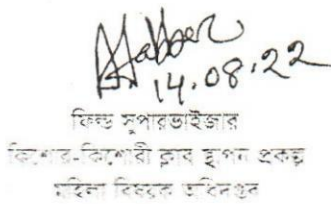 14.08.22
ফিল্ড সুপারভাইজার
কিশোর-কিশোরী ক্লাব স্থাপন প্রকল্প
মহিলা বিষয়ক অধিদপ্তর